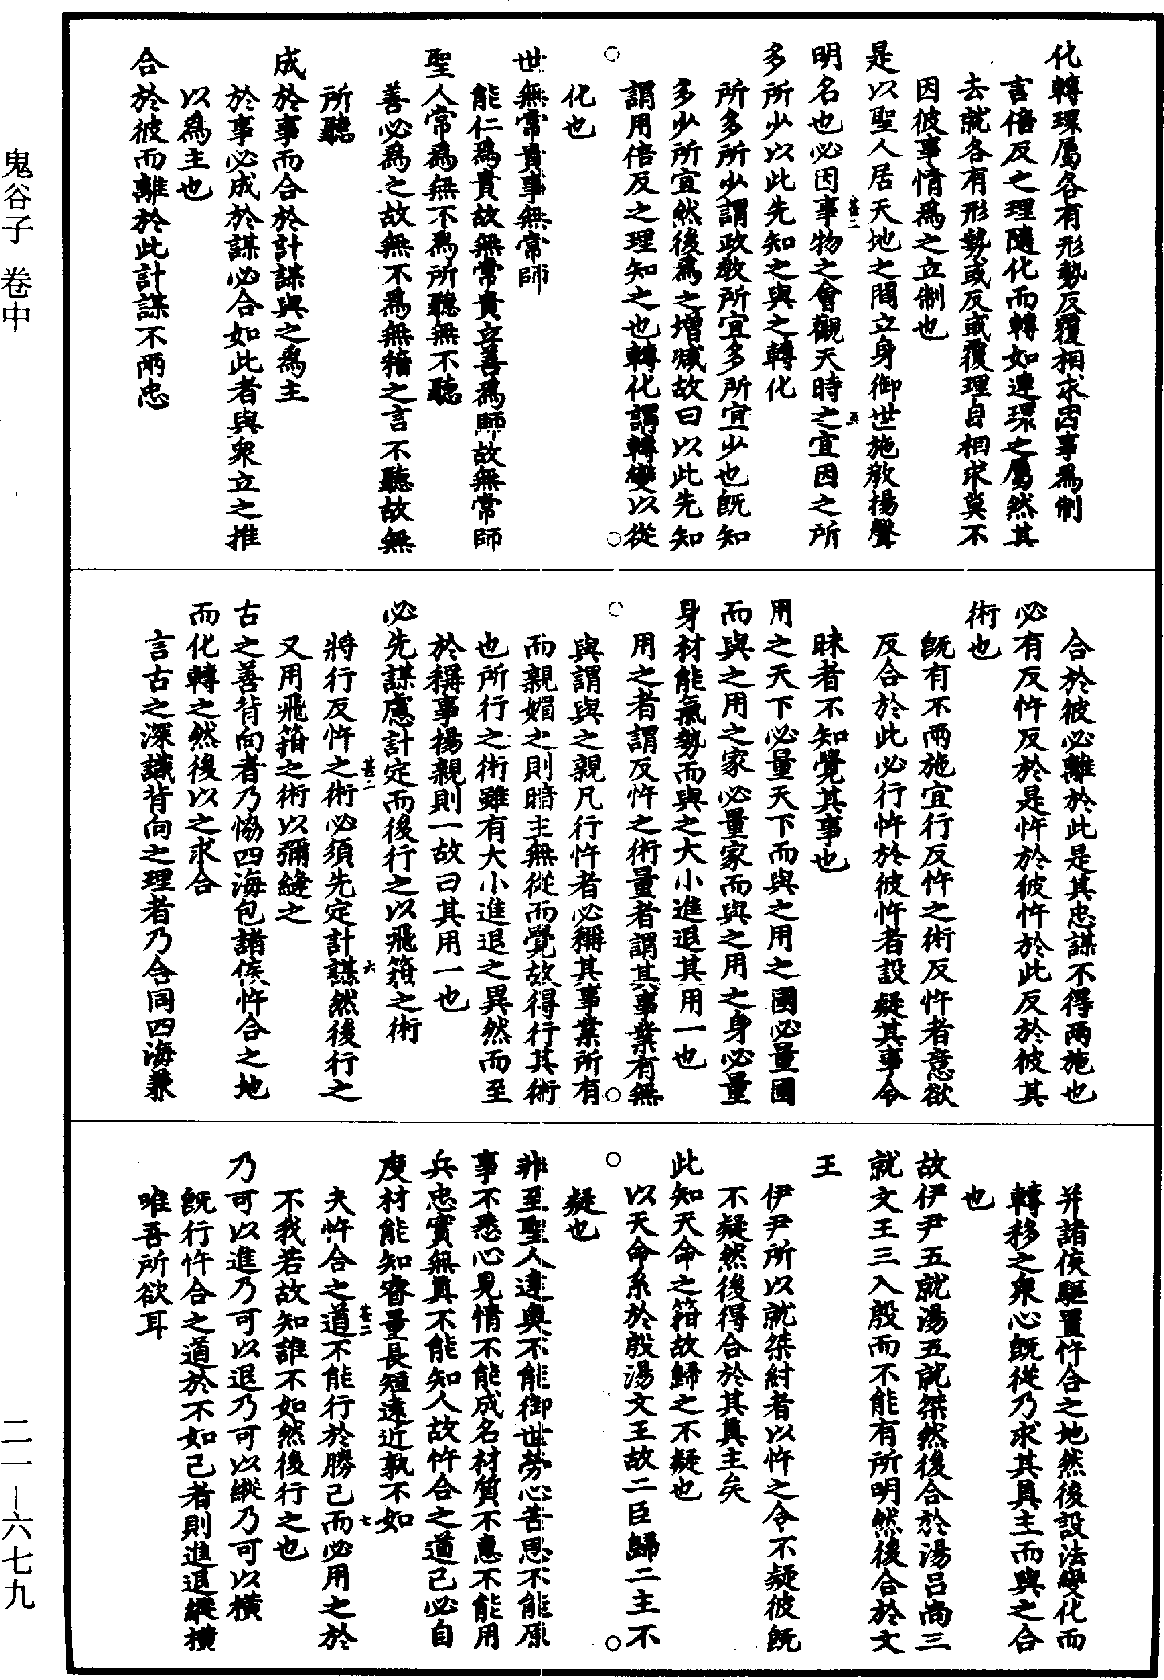 化轉環屬各有形勢反覆相求因事爲制
言倍反之理隨化而轉如連環之屬然其
去就各有形勢或反或覆理自相求莫不
因彼事情爲之立制也
是以聖人居天地之間立身御世施教揚聲
明名也必因事物之會觀天時之宜因之所
多所少以此先知之與之轉化
所多所少謂政教所宜多所宜少也既知
多少所宜然後爲之增减故曰以此先知
謂用倍反之理知之也轉化謂轉變以從
化也
世無常貴事無常師
能仁爲貴故無常貴立善爲師故無常師
聖人常爲無不爲所聽無不聽
善必爲之故無不爲無稽之言不聽故無
所聽
成於事而合於計謀與之爲主
於事必成於謀必合如此者與衆立之推
以爲主也
合於彼而離於此計謀不兩忠
合於彼必離於此是其忠謀不得兩施也
必有反忤反於是忤於彼忤於此反於彼其
術也
既有不兩施宜行反忤之術反忤者意欲
反合於此必行忤於彼忤者設疑其事令
昧者不知覺其事也
用之天下必量天下而與之用之國必量國
而與之用之家必量家而與之用之身必量
身材能氣勢而與之大小進退其用一也
用之者謂反忤之術量者謂其事業有無
與謂與之親凡行忤者必稱其事業所有
而親媚之則暗主無從而覺故得行其術
也所行之術雖有大小進退之異然而至
於稱事揚親則一故曰其用一也
必先謀慮計定而後行之以飛箝之術
將行反忤之術必須先定計謀然後行之
又用飛箝之術以彌縫之
古之善背向者乃恊四海包諸侯忤合之地
而化轉之然後以之求合
言古之深識背向之理者乃合同四海兼
并諸侯驅置忤合之地然後設法變化而
轉移之衆心既從乃求其真主而與之合
也
故伊尹五就湯五就桀然後合於湯呂尚三
就文王三入殷而不能有所明然後合於文
王
伊尹所以就桀紂者以忤之令不疑彼既
不疑然後得合於其真主矣
此知天命之箝故歸之不疑也
以天命系於殷湯文王故二臣歸二主不
疑也
非至聖人達奥不能御世勞心苦思不能原
事不悉心見情不能成名材質不惠不能用
兵忠實無真不能知人故忤合之道已必自
度材能知睿量長短遠近孰不如
夫忤合之道不能行於勝己而必用之於
不我若故知誰不如然後行之也
乃可以進乃可以退乃可以縱乃可以横
既行忤合之道於不如己者則進退縱横
唯吾所欲耳
鬼谷子 卷中
二一—六七九